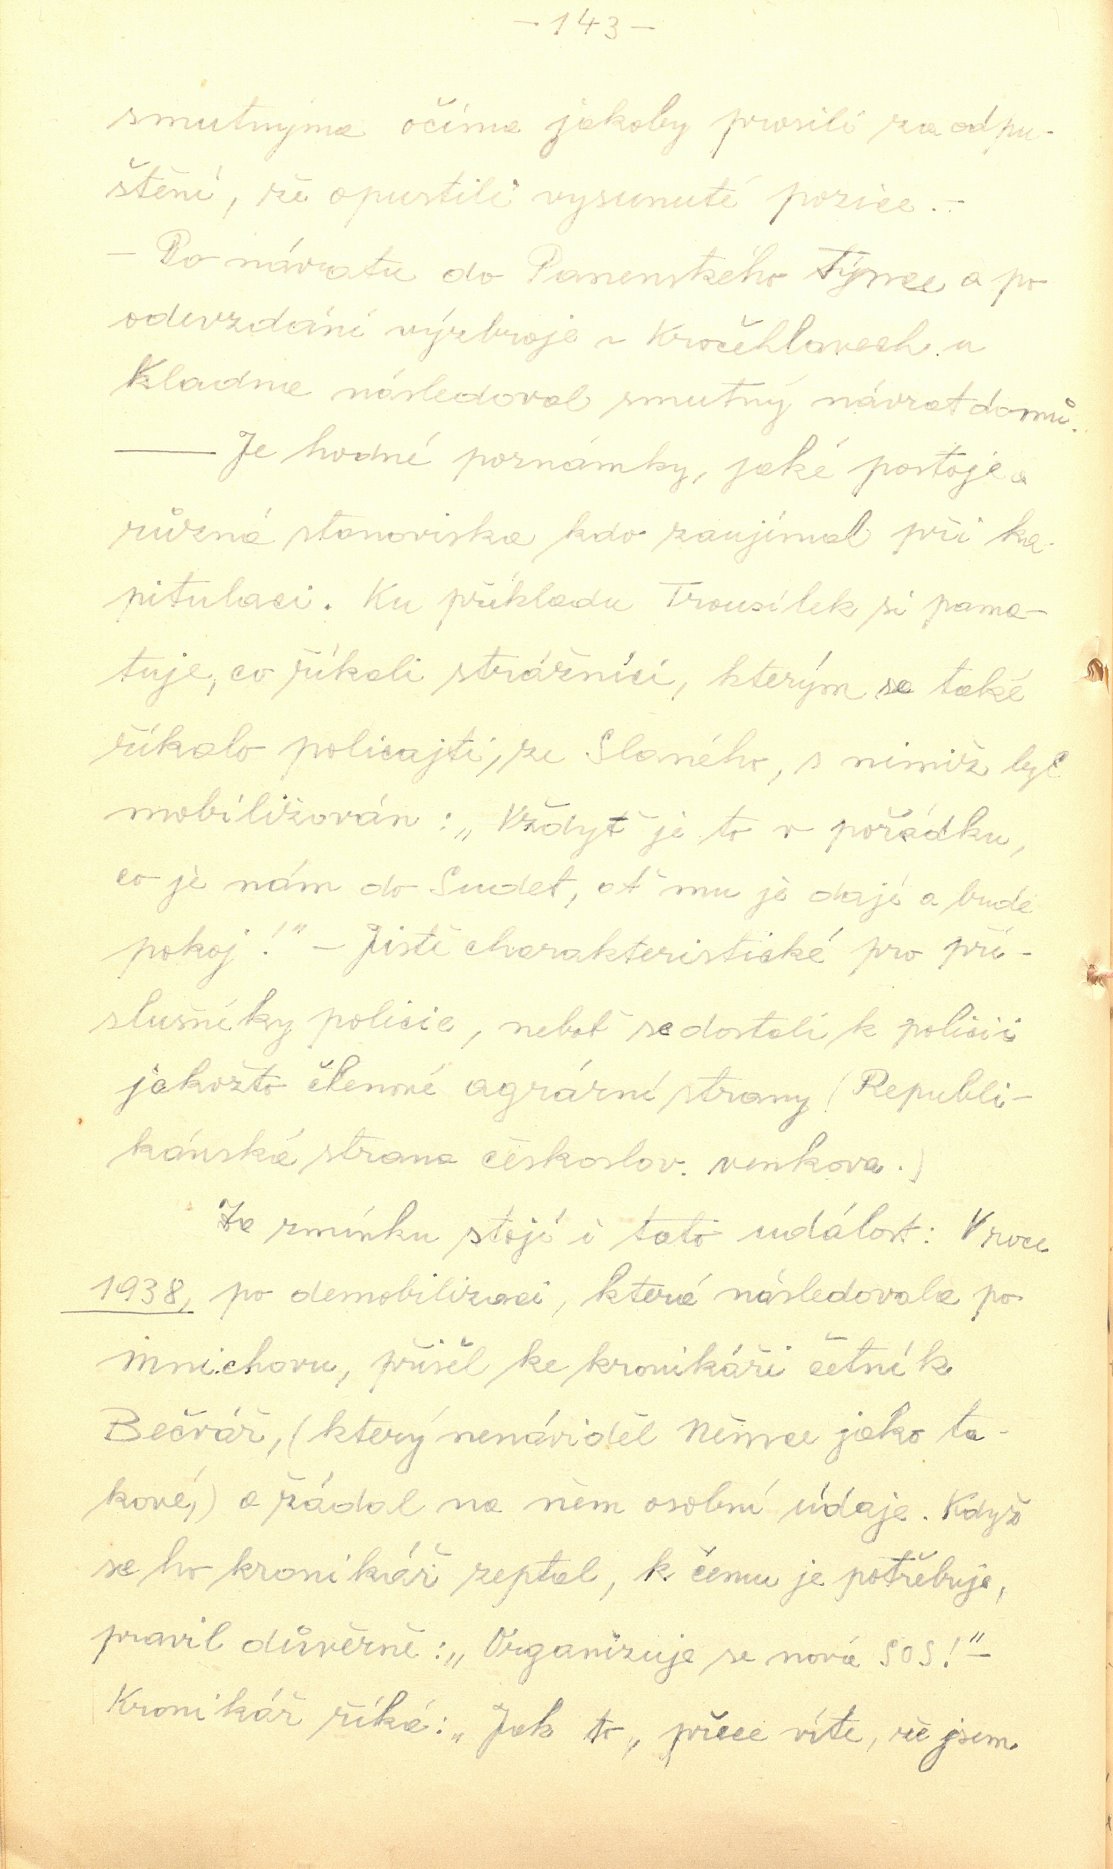 - 143 -
smutnýma očima jakoby prosili za odpu-
štění, že opustili vysunuté pozice. -
- Po návratu do Panenského Týnce a po
odevzdání výzbroje v Kročehlavech u
Kladna následoval smutný návrat domů.
—— Je hodné poznámky, jaké postoje a
různá stanoviska kdo zaujímal při ka-
pitulaci. Ku příkladu Trousílek si pama-
tuje, co říkali strážníci, kterým se také
říkalo policajti, ze Slaného, s nimiž byl
mobilizován: „Vždyť je to v pořádku,
co je nám do Sudet, ať mu je dají a bude
pokoj!" - Jistě charakteristické pro pří-
slušníky policie, neboť se dostali k policii
jakožto členové agrární strany (Republi-
kánská strana českoslov. venkova.)
Za zmínku stojí i tato událost: V roce
1938, po demobilizaci, která následovala po
Mnichovu, přišel ke kronikáři četník
Bečvář, (který nenáviděl Němce jako ta-
kové,) a žádal na něm osobní údaje. Když
se ho kronikář zeptal, k čemu je potřebuje,
pravil důvěrně: „Organizuje se nová SOS!" -
Kronikář říká: „Jak to, přece víte, že jsem